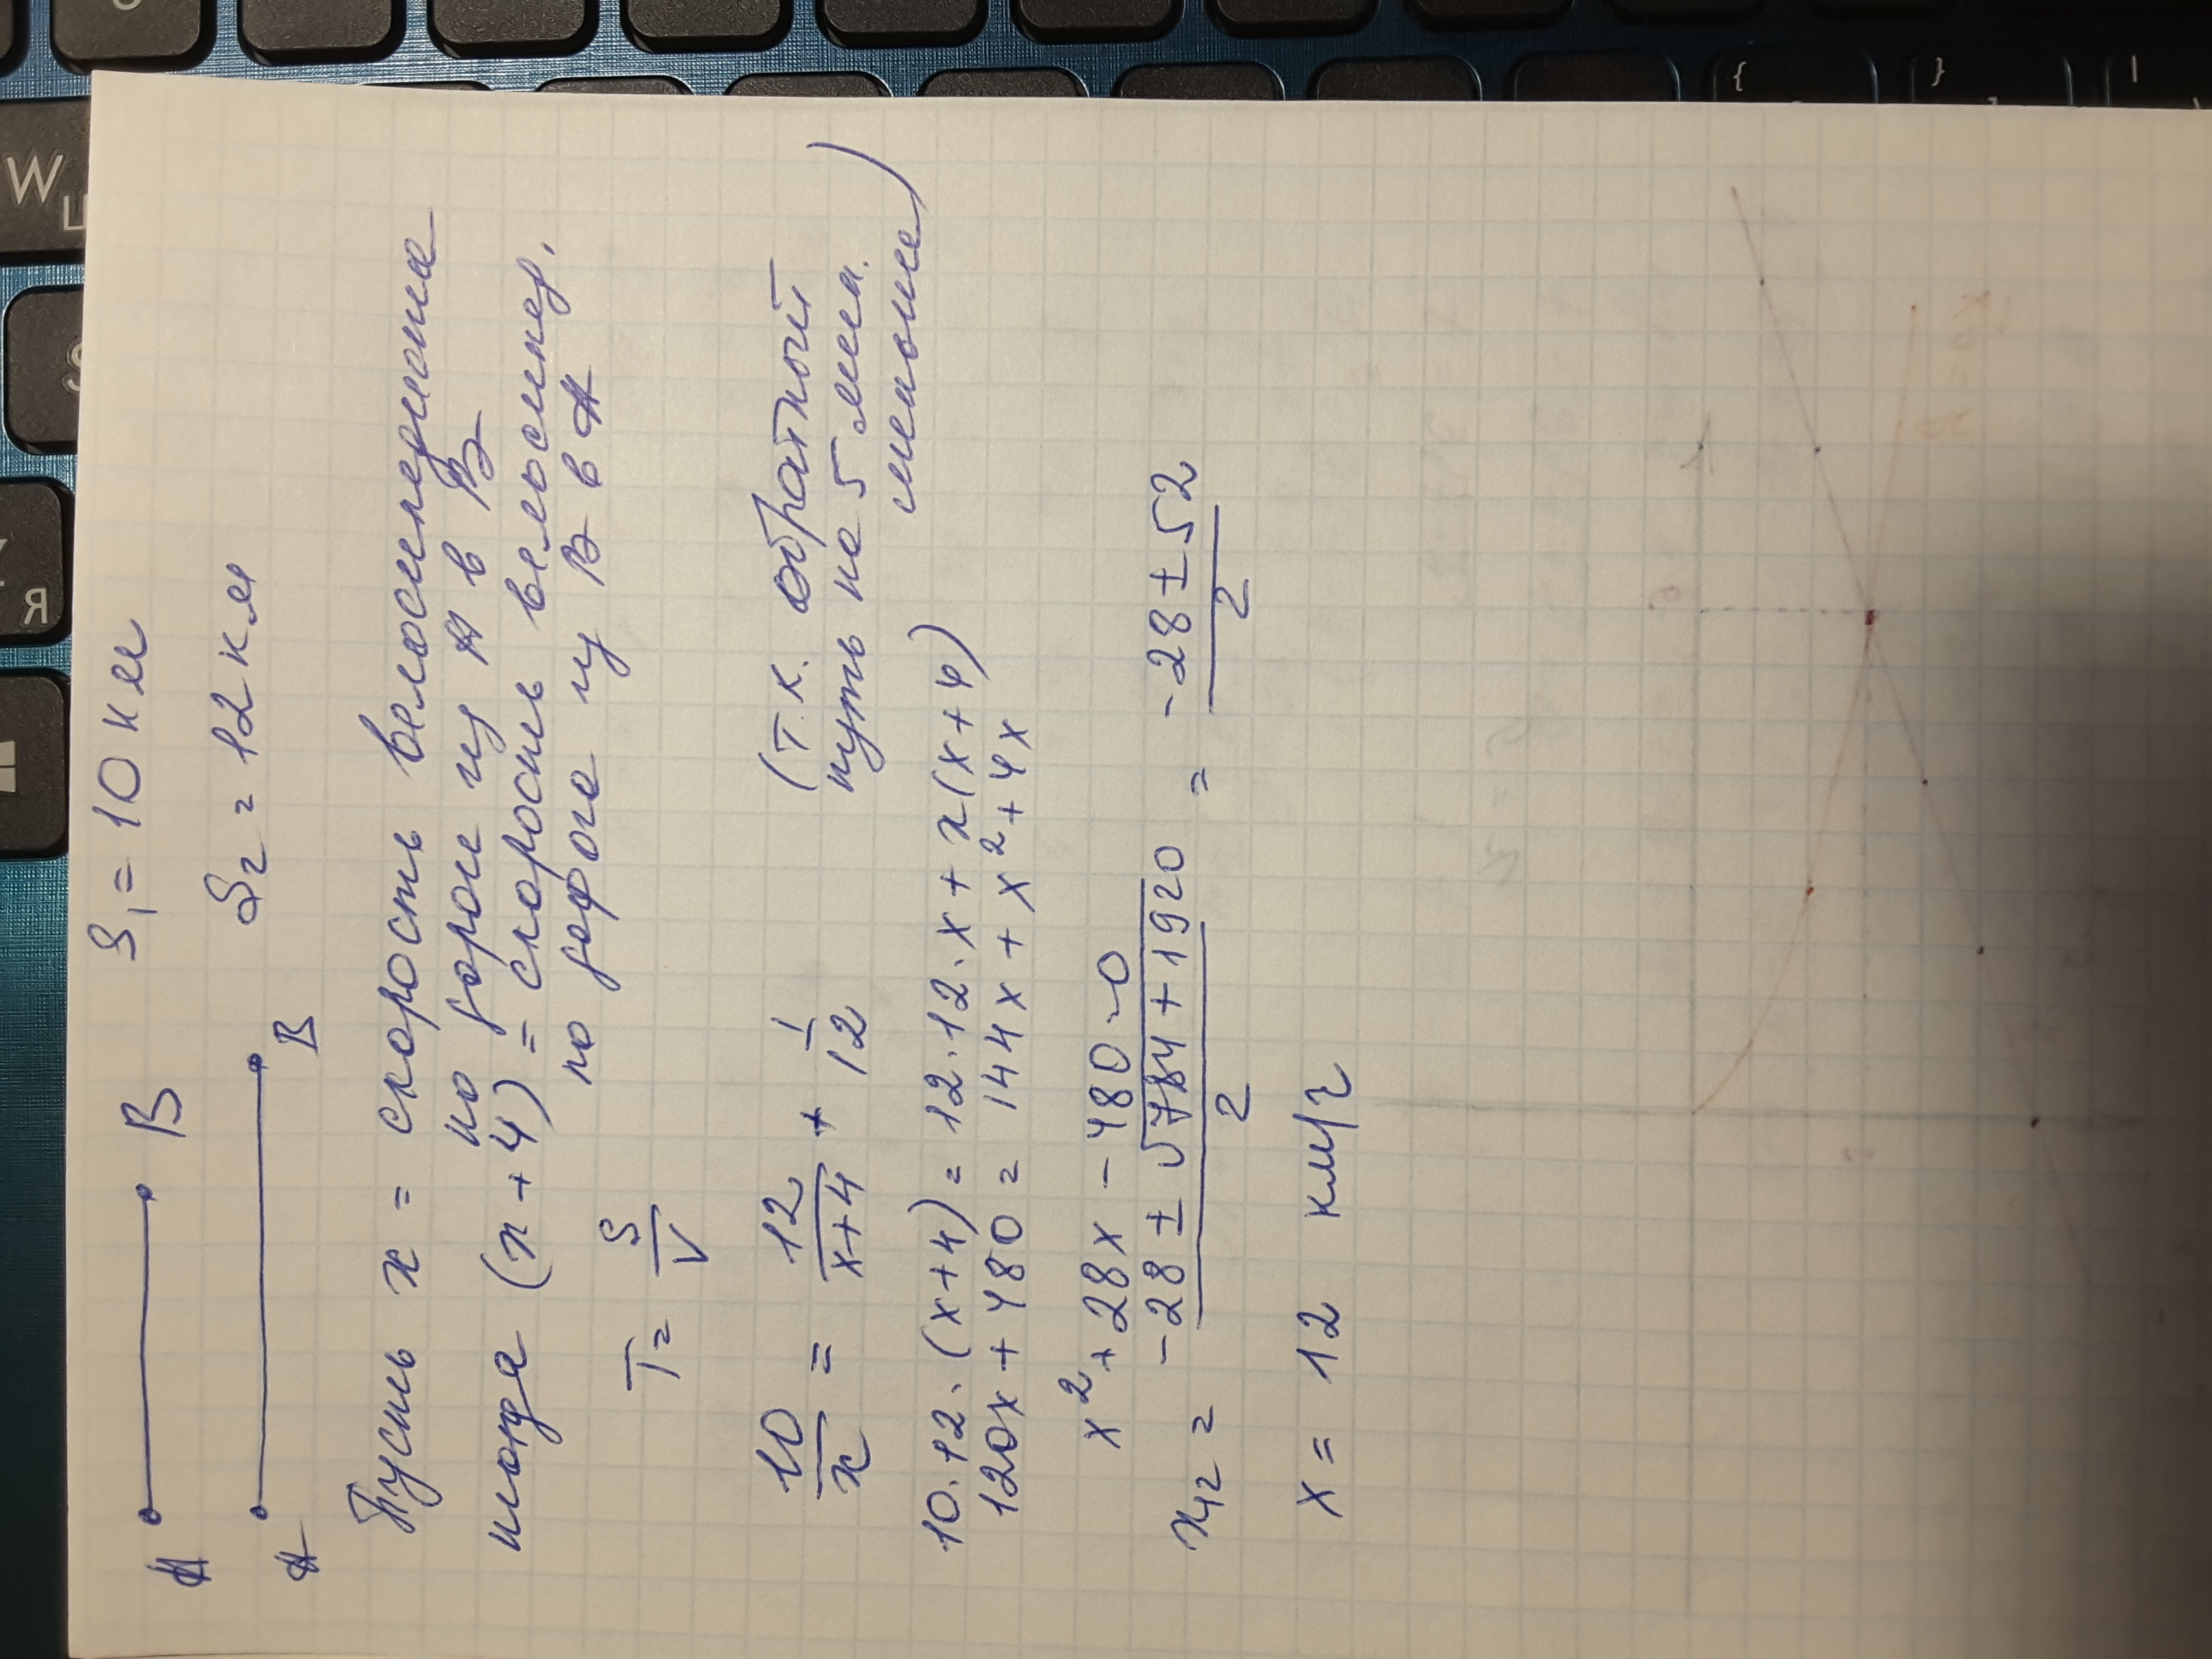 A B S₁ = 10 км
A B S₂ = 12 км
Пусть x = скорость велосипедиста
по дороге из A в B
тогда (x + 4) = скорость велосипед.
по дороге из B в A
T = S/V
10/x = 12/(x+4) + 1/12 (т.к. обратный
путь на 5 мин.
меньше)
10·12·(x+4) = 12·12·x + x(x+4)
120x + 480 = 144x + x² + 4x
x² + 28x - 480 = 0
x₁₂ = (-28 ± √(784 + 1920))/2 = (-28 ± 52)/2
x = 12 км/ч
W
Ц
S
Я
{
}
|